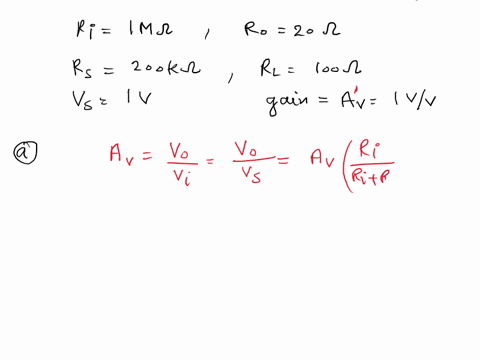 Ri = 1MΩ , Ro = 20 Ω
Rs = 200kΩ , RL = 100Ω
Vs = 1V gain = A'v = 1 V/v
ⓐ Av = Vo/Vi = Vo/Vs = Av (Ri/Ri+R